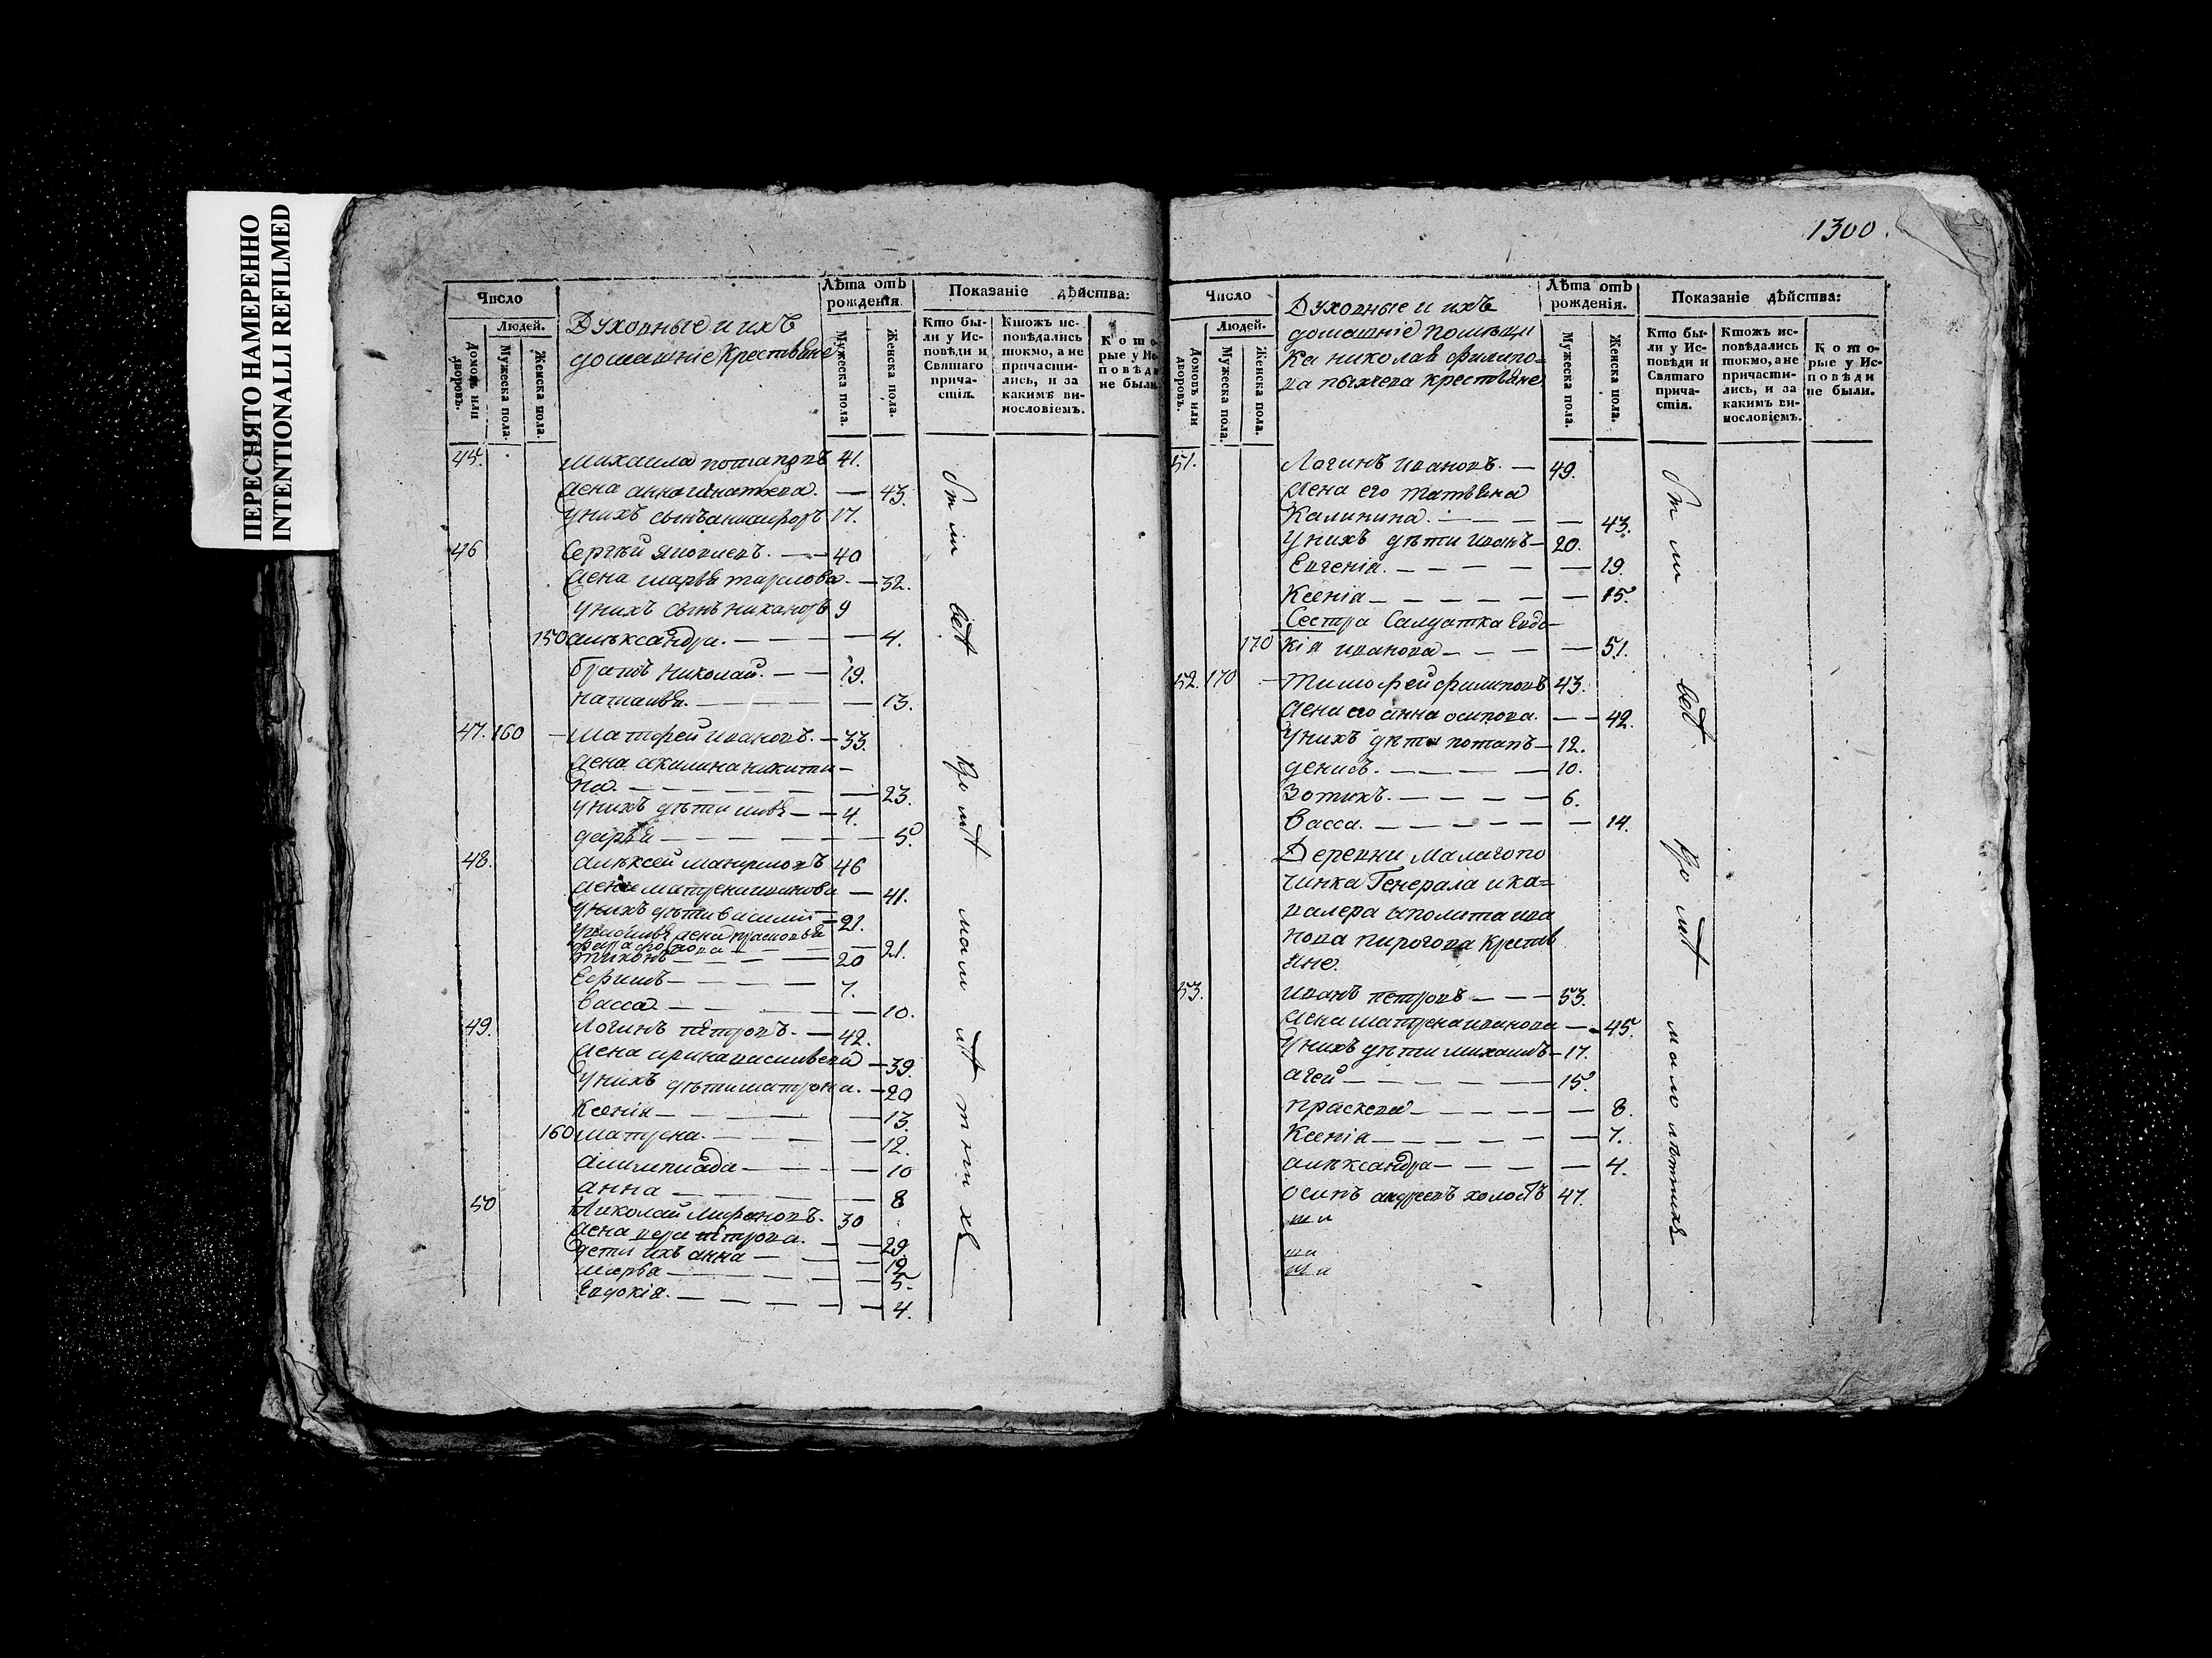 ПЕРЕСНЯТО НАМЕРЕННО
INTENTIONALLI REFILMED
1300.
Число
Людей.
Домовъ или дворовъ.
Мужеска пола.
Женска пола.
Духовные и ихъ
домашніе крестьяне
Лѣта отъ рожденія.
Мужеска пола.
Женска пола.
Показаніе дѣйства:
Кто бы-
ли у Ис-
повѣди и
Святаго
прича-
стія.
Ктожъ ис-
повѣдались
токмо, а не
причасти-
лись, и за
какимъ ви-
нословіемъ.
Кото-
рые у Ис-
повѣди
не были.
45. Михаила потаповъ 41.
жена анна игнатьева. — 43.
у нихъ сынъ 17.
46 Сергѣй яковлевъ. — 40
жена марья — 32.
у нихъ сынъ никаноръ 9
150 алѣксандра. — 4.
братъ николай. — 19.
наталья. — 13.
47. 160 — матфей ивановъ. — 33.
жена акилина никити-
на. — 23.
у нихъ дѣти — 4.
дарья — 5
48. алѣксей 46
жена матрена иванова — 41.
у нихъ дѣти василий — 21.
жена прасковья
— 21.
тихонъ — 20
Ефимъ — 7.
васса — 10.
49. логинъ петровъ. — 42.
жена арина васильева — 39.
у нихъ дѣти матрона. — 20
Ксенія — 13.
160 матрена. — 12.
алимпиада — 10
анна — 8
50 николай 30
жена вера петрова. — 29.
дети ихъ анна — 12
марѳа — 5.
Евдокія. — 4.
Число
Людей.
Домовъ или дворовъ.
Мужеска пола.
Женска пола.
Духовные и ихъ
домашніе помѣщи
ка николая филипо=
ва крестьяне
Лѣта отъ рожденія.
Мужеска пола.
Женска пола.
Показаніе дѣйства:
Кто бы-
ли у Ис-
повѣди и
Святаго
прича-
стія.
Ктожъ ис-
повѣдались
токмо, а не
причасти-
лись, и за
какимъ ви-
нословіемъ.
Кото-
рые у Ис-
повѣди
не были.
51. Логинъ ивановъ. — 49.
жена его татьяна
Калинина. — 43.
у нихъ дѣти иванъ — 20.
Евгенія. — 19.
Ксенія — 15.
Сестра Салдатка Евдо-
170 кія иванова — 51.
52. 170 — тимофей филиповъ 43.
жена его анна осипова. — 42.
у нихъ дѣти потапъ — 12.
денисъ. — 10.
Зотикъ. — 6.
Васса. — 14.
Деревни малаго по
чинка Генерала и ка=
валера иполита ива
нова пирогова крестья
яне.
53. иванъ петровъ — 53.
жена матрена иванова — 45.
у нихъ дѣти михаилъ — 17.
агей — 15.
прасковья — 8.
Ксенія — 7.
алѣксандра — 4.
осипъ андреевъ холостъ 47.
кромѣ
малолѣтнихъ
кромѣ
малолѣтнихъ